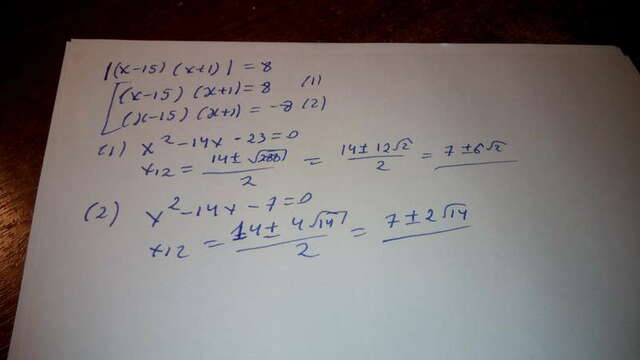 |(x-15) (x+1)| = 8
[(x-15) (x+1) = 8 (1)
(x-15) (x+1) = -8 (2)
(1) x² - 14x - 23 = 0
x12 = (14 ± √288)/2 = (14 ± 12√2)/2 = 7 ± 6√2
(2) x² - 14x - 7 = 0
x12 = (14 ± 4√14)/2 = 7 ± 2√14